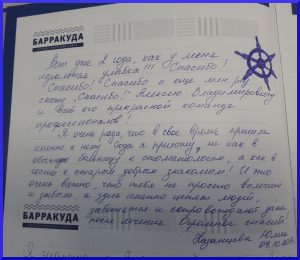 БАРРАКУДА
Вот уже 2 года, как у меня
идеальная улыбка!!! Спасибо!
Спасибо! Спасибо и еще млн раз
скажу "Спасибо!" Алексею Владимировичу
и всей его прекрасной команде
профессионалов!
Я очень рада, что в свое время пришла
именно к нему. Сюда я прихожу не как в
обычную больницу к стоматологам, а как в
гости к старым добрым знакомым! И это
очень важно, что тебе не просто лечили
и забыли, а здесь именно ценят людей,
БАРРАКУДА
заботятся и сопровождают даже
после лечения. Огромное спасибо!
Казанцева Юлия
09.10.201